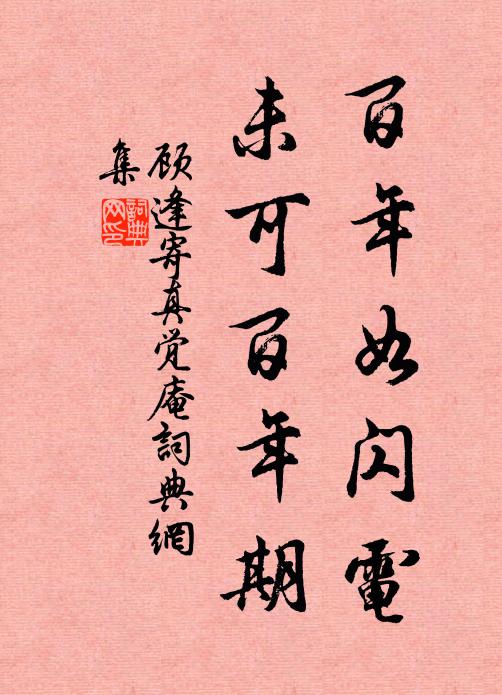 百年如闪電
未可百年期
顾逢寄真觉庵詞典網
集
詞典
网印